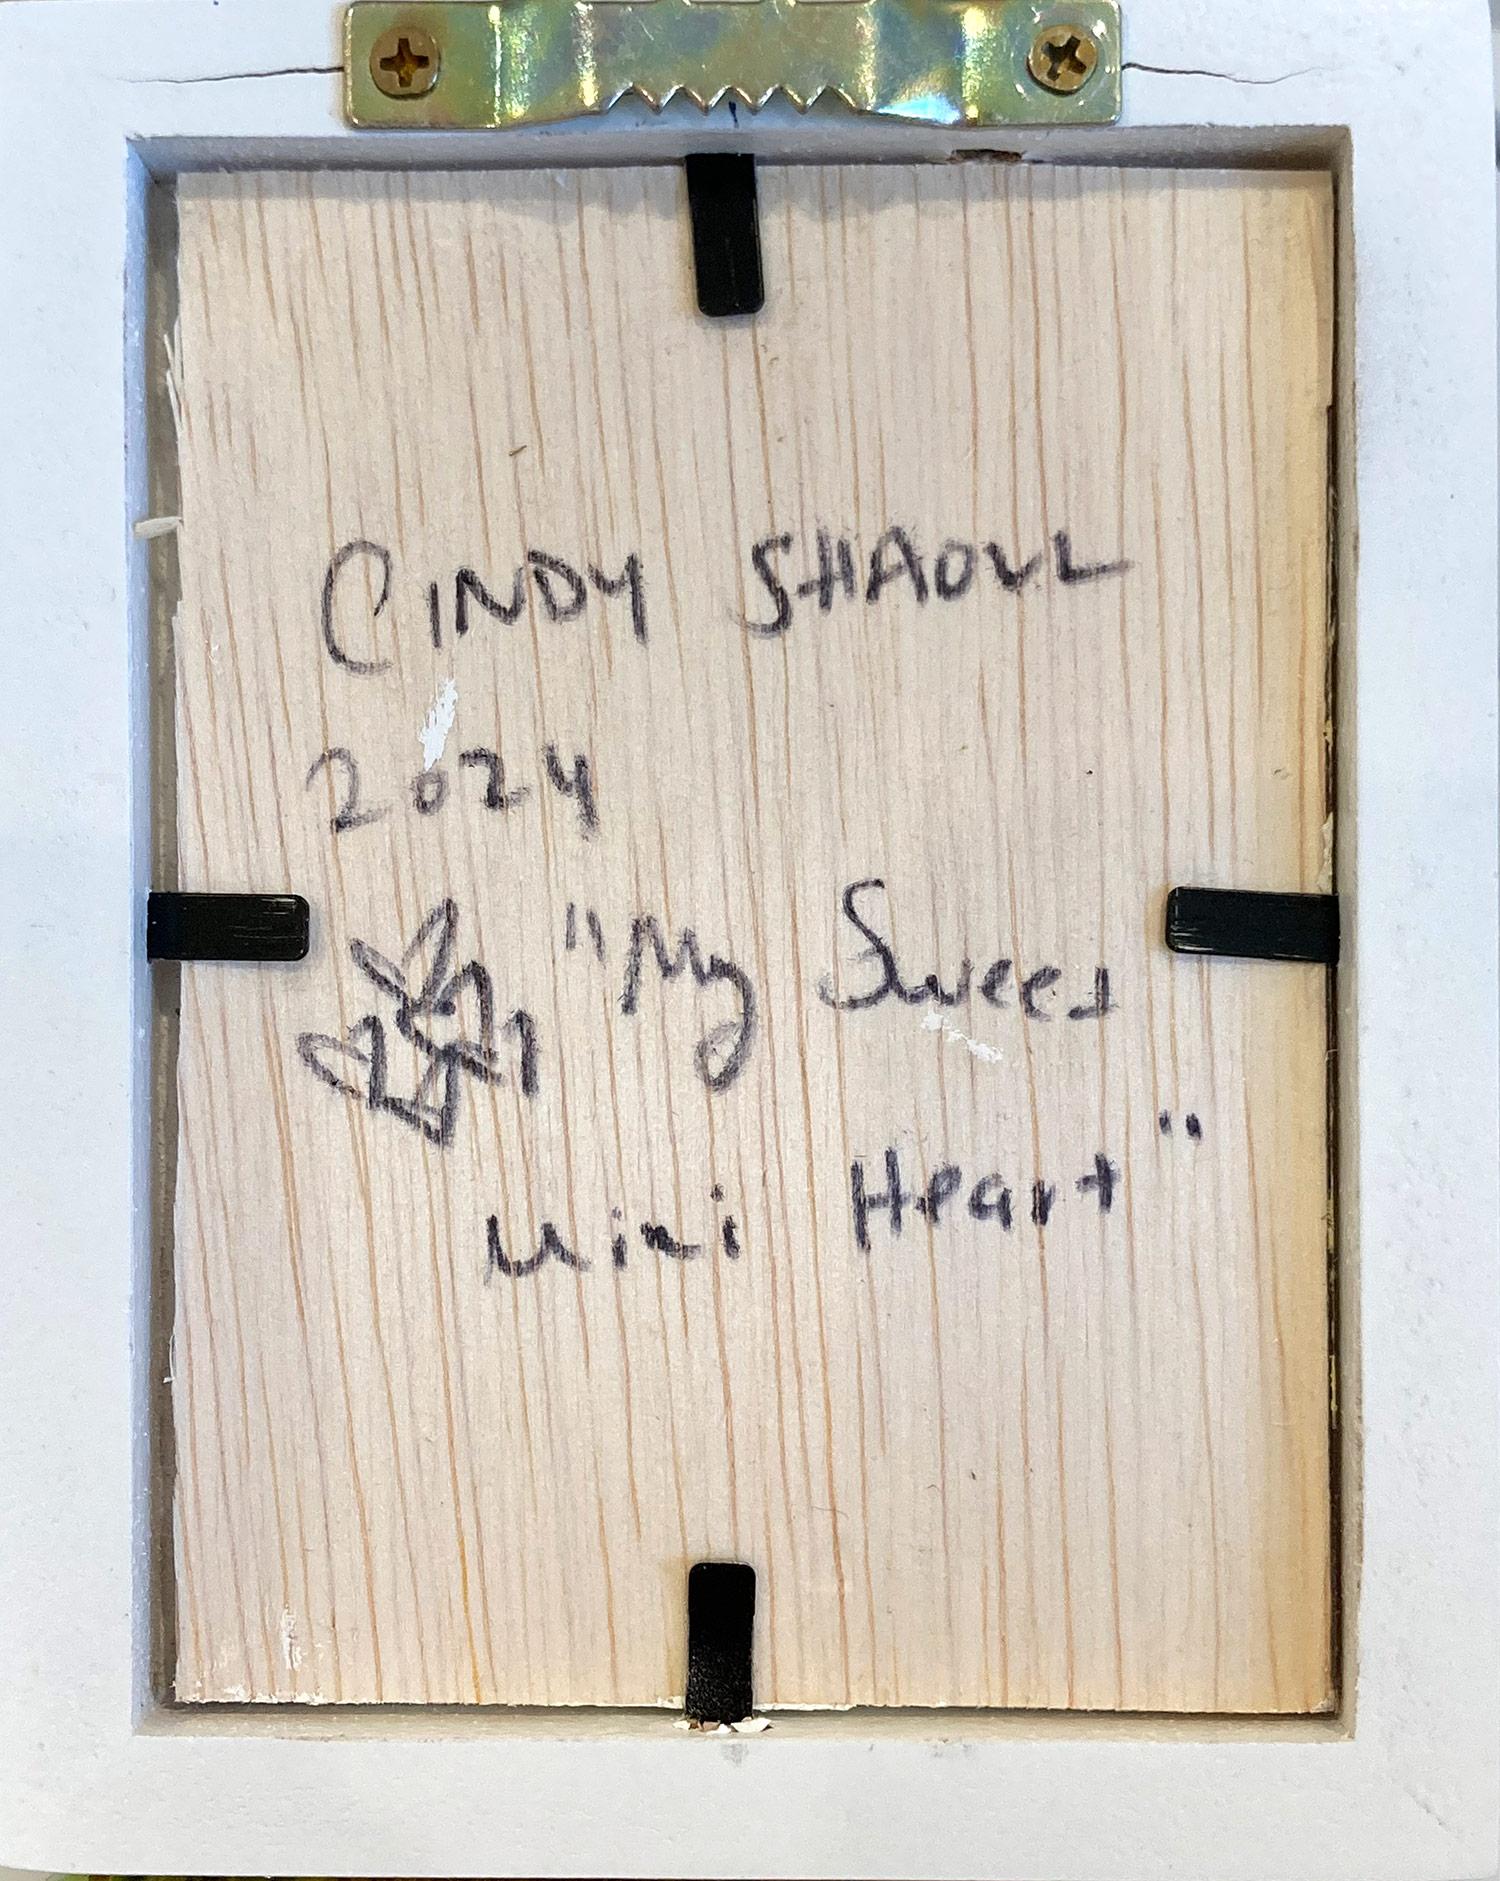 CINDY SHAOUL
2024
"My Sweet
Mini Heart"